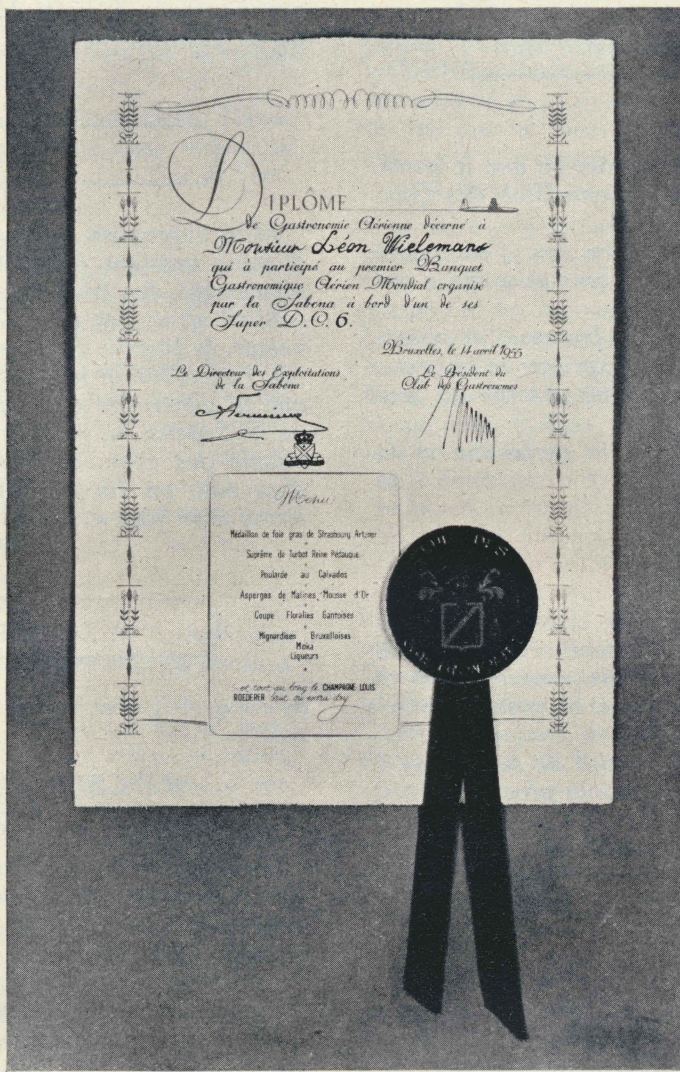 DIPLÔME
de Gastronomie Aérienne décerné à
Monsieur Léon Wielemans
qui à participé au premier Banquet
Gastronomique Aérien Mondial organisé
par la Sabena à bord d'un de ses
Super D.C. 6.
Bruxelles, le 14 avril 1955
Le Directeur des Exploitations
de la Sabena
Le Président du
Club des Gastronomes
Menu
Médaillon de foie gras de Strasbourg Artzner
Suprême de Turbot Reine Pédauque
Poularde au Calvados
Asperges de Malines, Mousse d'Or
Coupe Floralies Gantoises
Mignardises Bruxelloises
Moka
Liqueurs
et tout au long le CHAMPAGNE LOUIS
ROEDERER brut ou extra dry
CLUB DES
GASTRONOMES